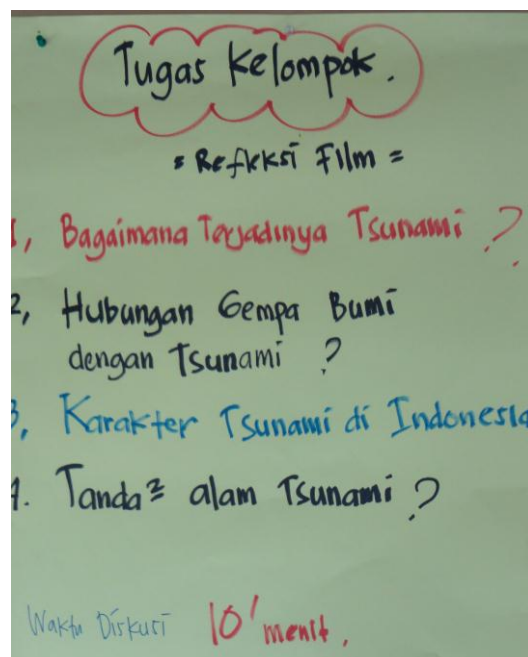 Tugas Kelompok.
= Refleksi Film =
1, Bagaimana Terjadinya Tsunami ?
2, Hubungan Gempa Bumi
dengan Tsunami ?
3, Karakter Tsunami di Indonesia
4. Tanda² alam Tsunami ?
Waktu Diskusi 10' menit,